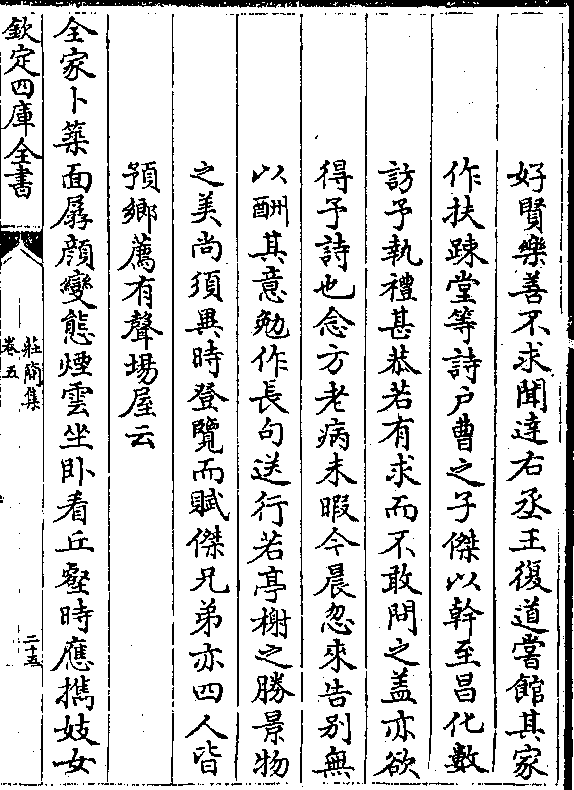 好賢樂善不求聞達右丞王復道嘗館其家
作扶踈堂等詩户曹之子傑以幹至昌化數
訪予執禮甚恭若有求而不敢問之盖亦欲
得予詩也念方老病未暇今晨忽來告别無
以酬其意勉作長句送行若亭榭之勝景物
之美尚須異時登覽而賦傑兄弟亦四人皆
預鄉薦有聲場屋云
全家卜築面孱顔變態煙雲坐卧看丘壑時應攜妓女
欽定四庫全書
莊簡集
卷五
二十五